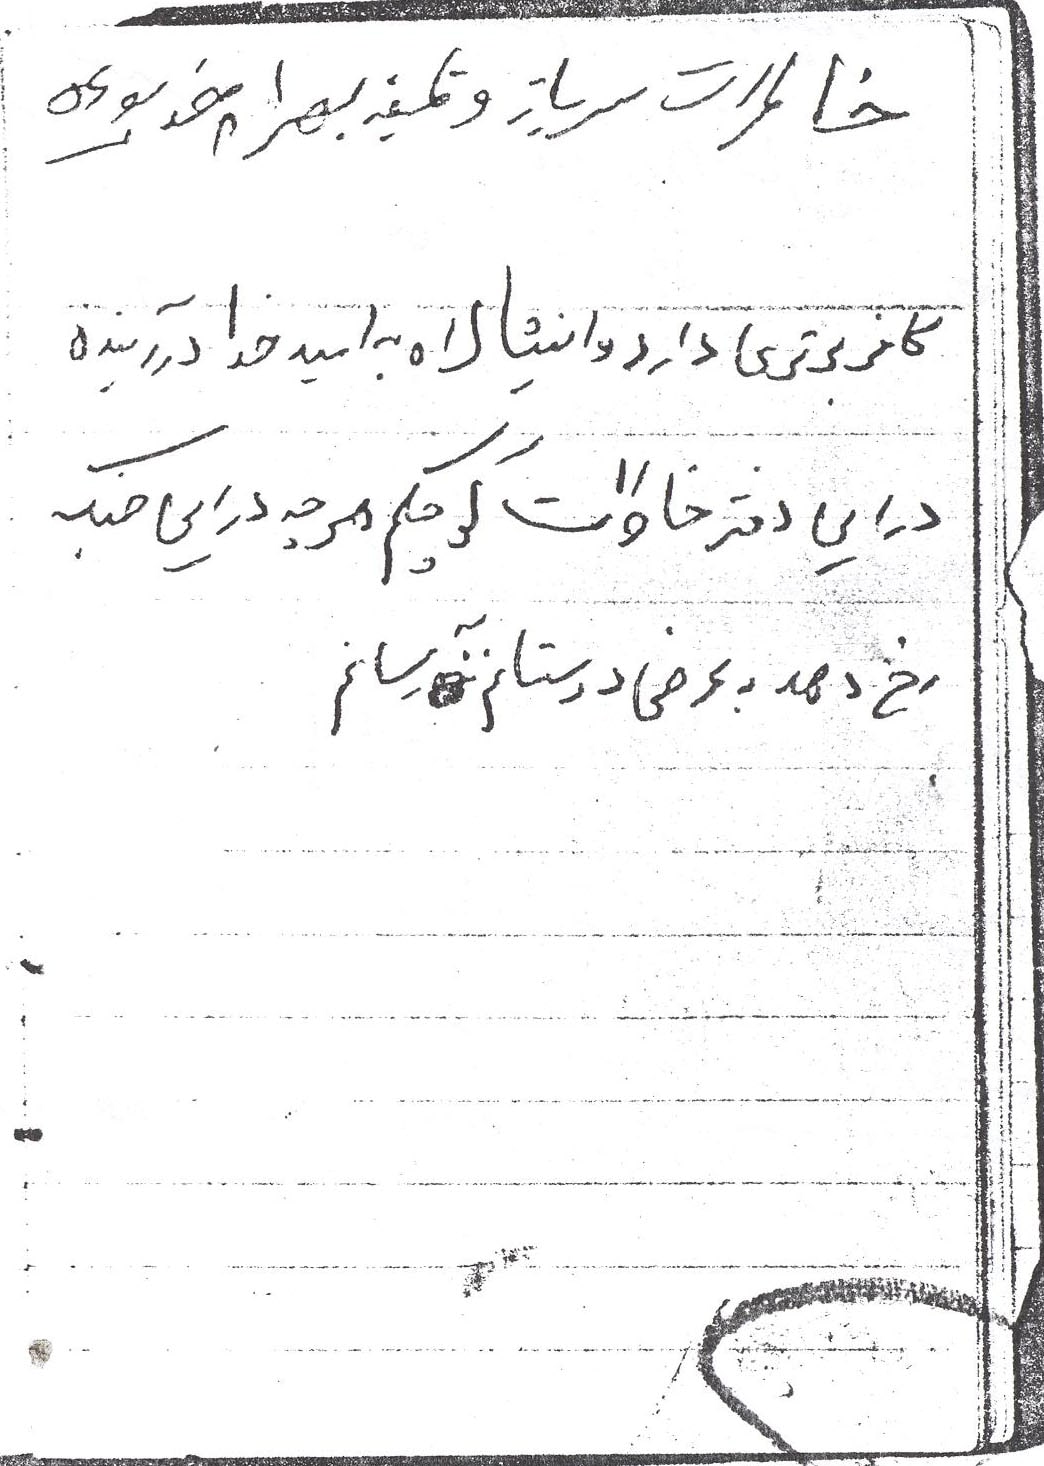 خاطرات سرباز وظیفه بهرام
کافر برتری دارد وانشاالله به امید خدا درآینده
در این دفتر خاطرات کوچکم هرچه در این جنگ
رخ دهد به عرض دوستانم برسانم